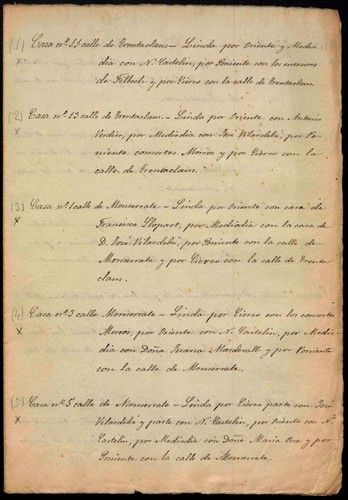 (1) Casa nº 11 calle de Trentaclaus – Linda por Oriente y Medio
x dia con N. Castelin, por Poniente con los menores
de Filbech y por Cierzo con la calle de Trentaclaus.
(2) Casa nº 13 calle de Trentaclaus – Linda por Oriente con Antonio
x Verdur, por Mediodia con José Vilardebó, por Po
niente consortes Morros y por Cierzo con la
calle de Trentaclaus.
(3) Casa nº 1 calle de Monserrate – Linda por Oriente con casa de
x Francisco Llopart, por Mediodia con la casa de
D. José Vilardebó, por Poniente con la calle de
Monserrate y por Cierzo con la calle de Trenta
claus.
(4) Casa nº 3 calle Monserrate – Linda por Cierzo con los consortes
x Morros, por Oriente con N. Castelin, por Medio
dia con Doña Juana y por Poniente
con la calle de Monserrate.
(5) Casa nº 5 calle de Monserrate – Linda por Cierzo parte con José
x Vilardebó y parte con N. Castelin, por Oriente con N.
Castelin, por Mediodia con Doña Maria y por
Poniente con la calle de Monserrate.